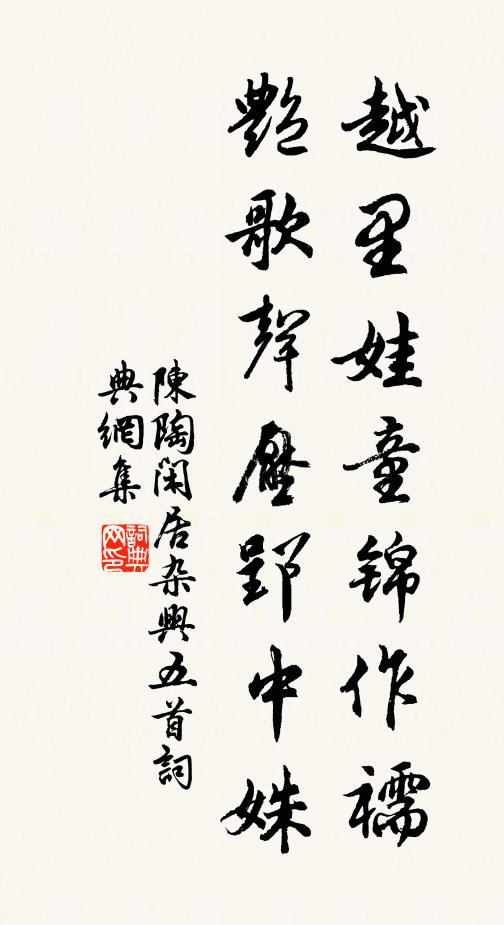 越里娃童錦作襦
艷歌聲壓郢中姝
陳陶閑居杂興五首詞
典網集
詞典网印